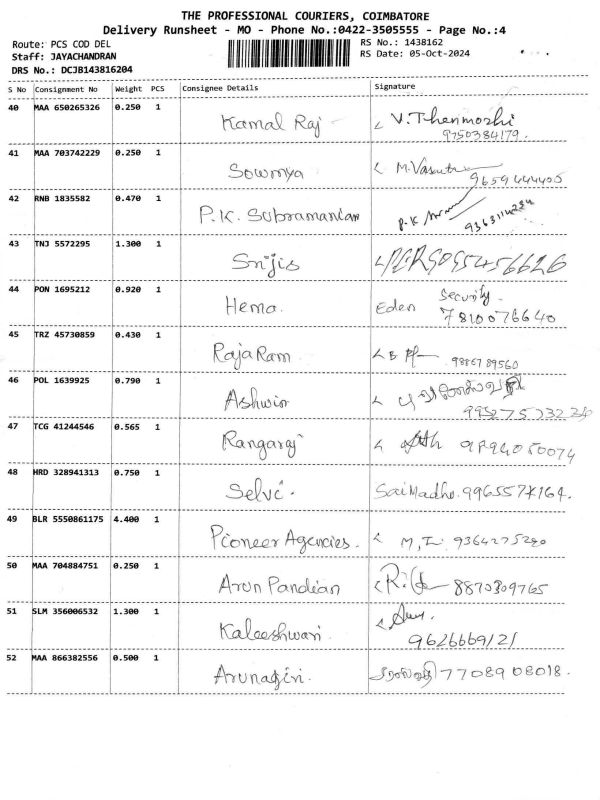 THE PROFESSIONAL COURIERS, COIMBATORE
Delivery Runsheet - MO - Phone No.:0422-3505555 - Page No.:4
Route: PCS COD DEL
RS No.: 1438162
Staff: JAYACHANDRAN
RS Date: 05-Oct-2024
DRS No.: DCJB143816204
S No Consignment No Weight PCS Consignee Details Signature
40 MAA 650265326 0.250 1 Kamal Raj V. Thenmozhi
9750384179.
41 MAA 703742229 0.250 1 Sowmya M. Vasuth
9659444405
42 RNB 1835582 0.470 1 P.K. Subramaniam P.K
43 TNJ 5572295 1.300 1 Srijis
44 PON 1695212 0.920 1 Hema. Eden Security.
7810076640
45 TRZ 45730859 0.430 1 RajaRam B 9886789560
46 POL 1639925 0.790 1 Ashwin
47 TCG 41244546 0.565 1 Rangaraj
48 HRD 328941313 0.750 1 Selvi. Sai Madhe.
49 BLR 5550861175 4.400 1 Pioneer Agencies. M, I 9364275280
50 MAA 704884751 0.250 1 Arun Pandian 8870309765
51 SLM 356006532 1.300 1 Kaleeshwari
9626669121
52 MAA 866382556 0.500 1 Arunagiri. 7708908018.